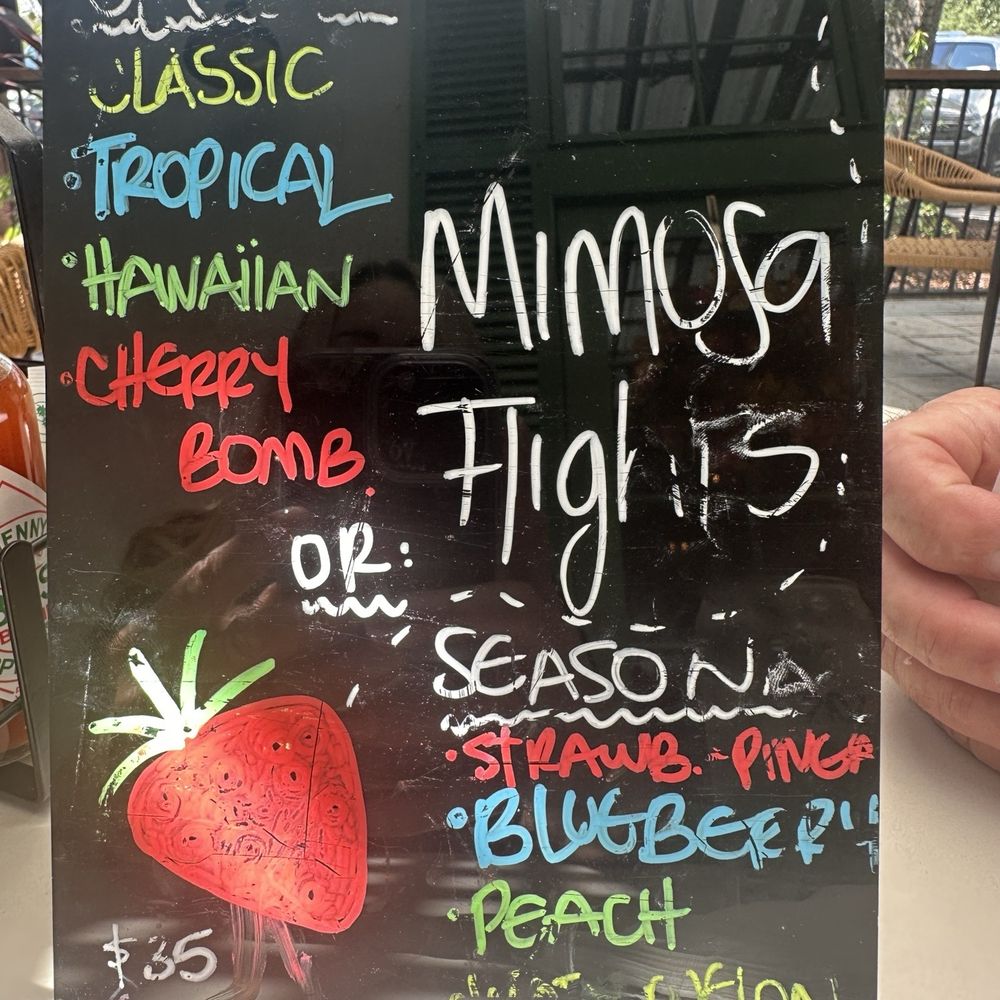 CLASSIC
• TROPICAL
• HAWAIIAN
• CHERRY
BOMB
OR:
MIMOSA
FlighTS
SEASONA
• STRAWB. - PINEA
• BLUEBERRY
• PEACH
$35
ENNY